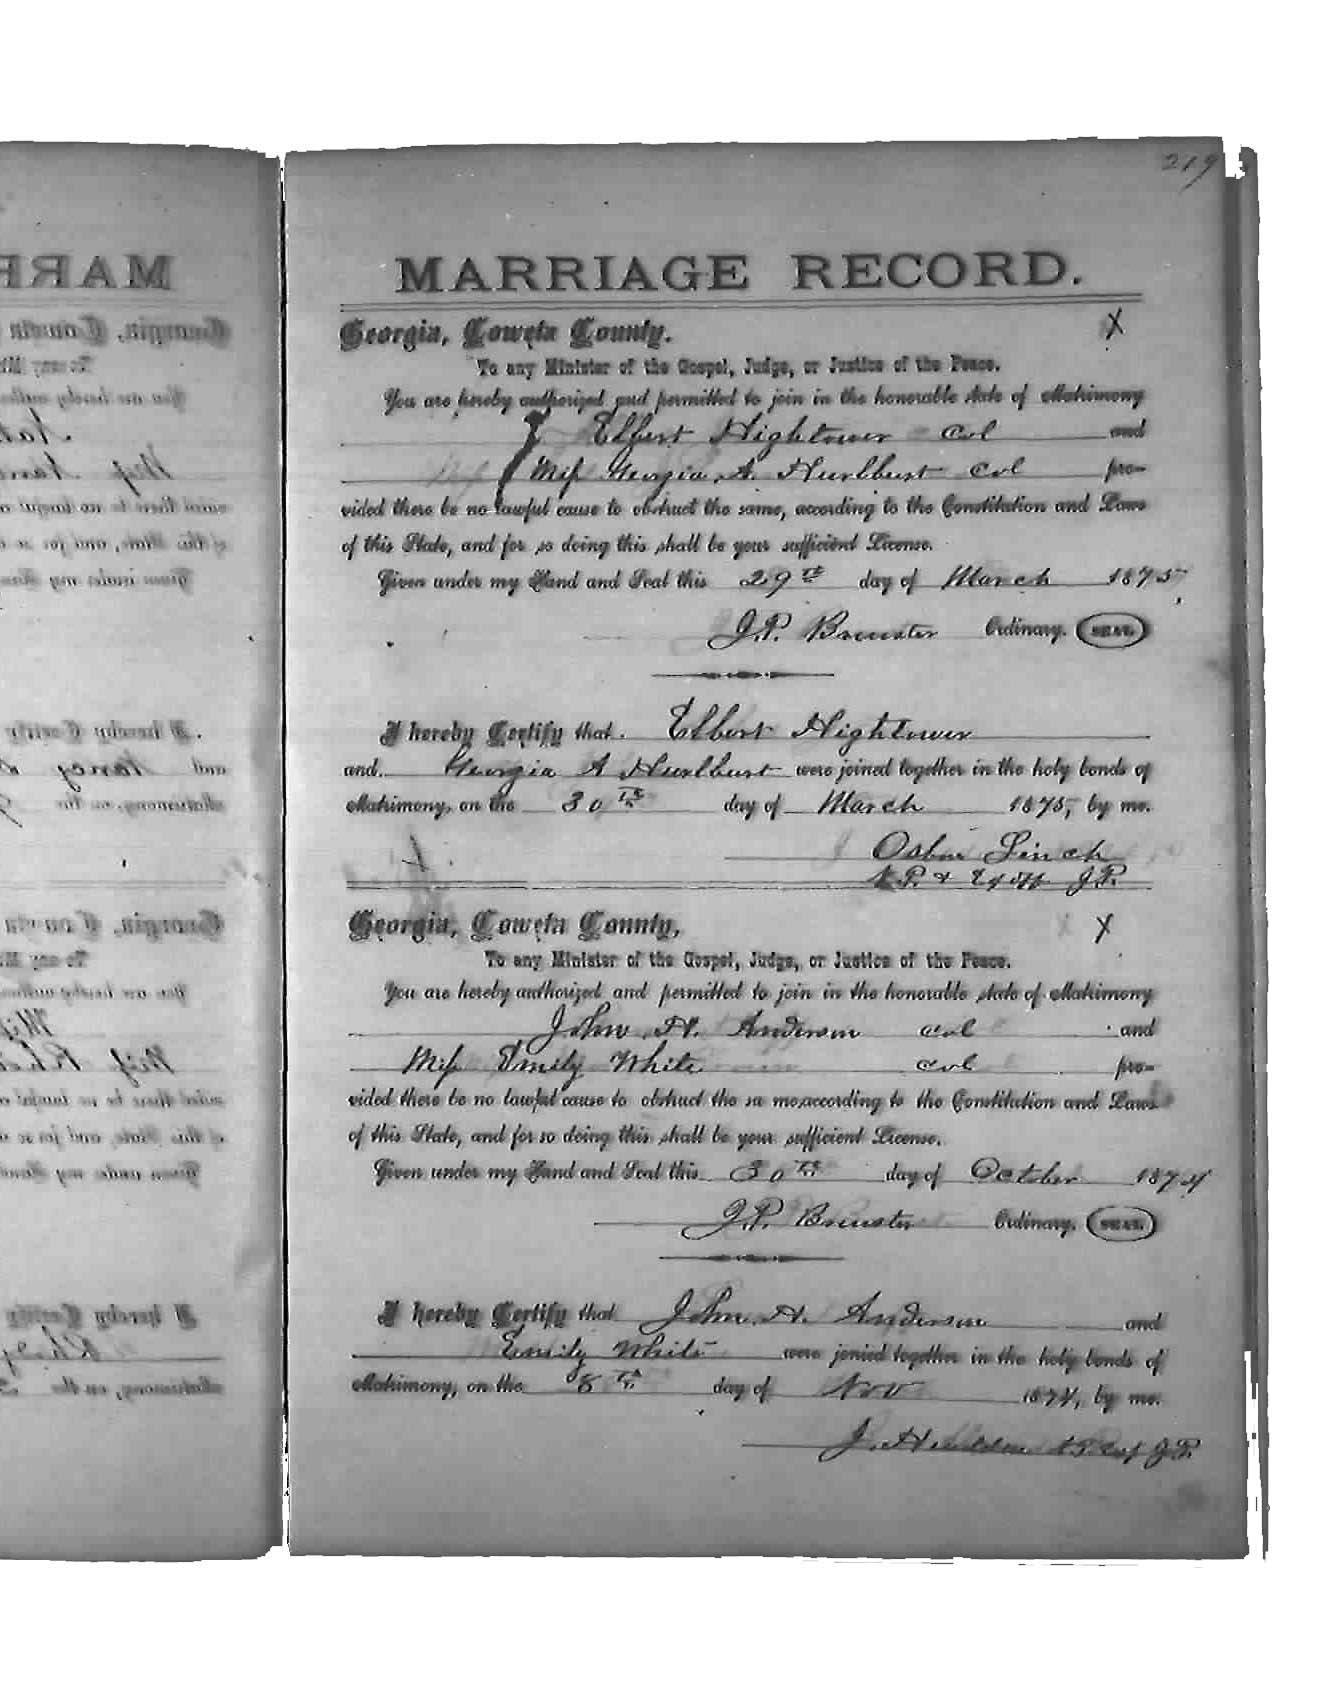 219
MARRIAGE RECORD.
Georgia, Coweta County.
X
To any Minister of the Gospel, Judge, or Justice of the Peace.
You are hereby authorized and permitted to join in the honorable state of Matrimony
Elbert Hightower col and
Miss Georgia A. Hurlburt col pro-
vided there be no lawful cause to obstruct the same, according to the Constitution and Laws
of this State, and for so doing this shall be your sufficient License.
Given under my Hand and Seal this 29th day of March 1875,
J.P. Brewster Ordinary. SEAL.
I hereby Certify that Elbert Hightower
and Georgia A Hurlburt were joined together in the holy bonds of
Matrimony, on the 30th day of March 1875, by me.
Osburn Linch
N.P. & Ex off J.P.
Georgia, Coweta County,
X
To any Minister of the Gospel, Judge, or Justice of the Peace.
You are hereby authorized and permitted to join in the honorable state of Matrimony
John H. Anderson col and
Miss Emily White col pro-
vided there be no lawful cause to obstruct the sa me,according to the Constitution and Laws
of this State, and for so doing this shall be your sufficient License.
Given under my Hand and Seal this 30th day of October 1874
J.P. Brewster Ordinary. SEAL.
I hereby Certify that John H. Anderson and
Emily White were jonied together in the holy bonds of
Matrimony, on the 8th day of Nov 1874, by me.
J. J.P.